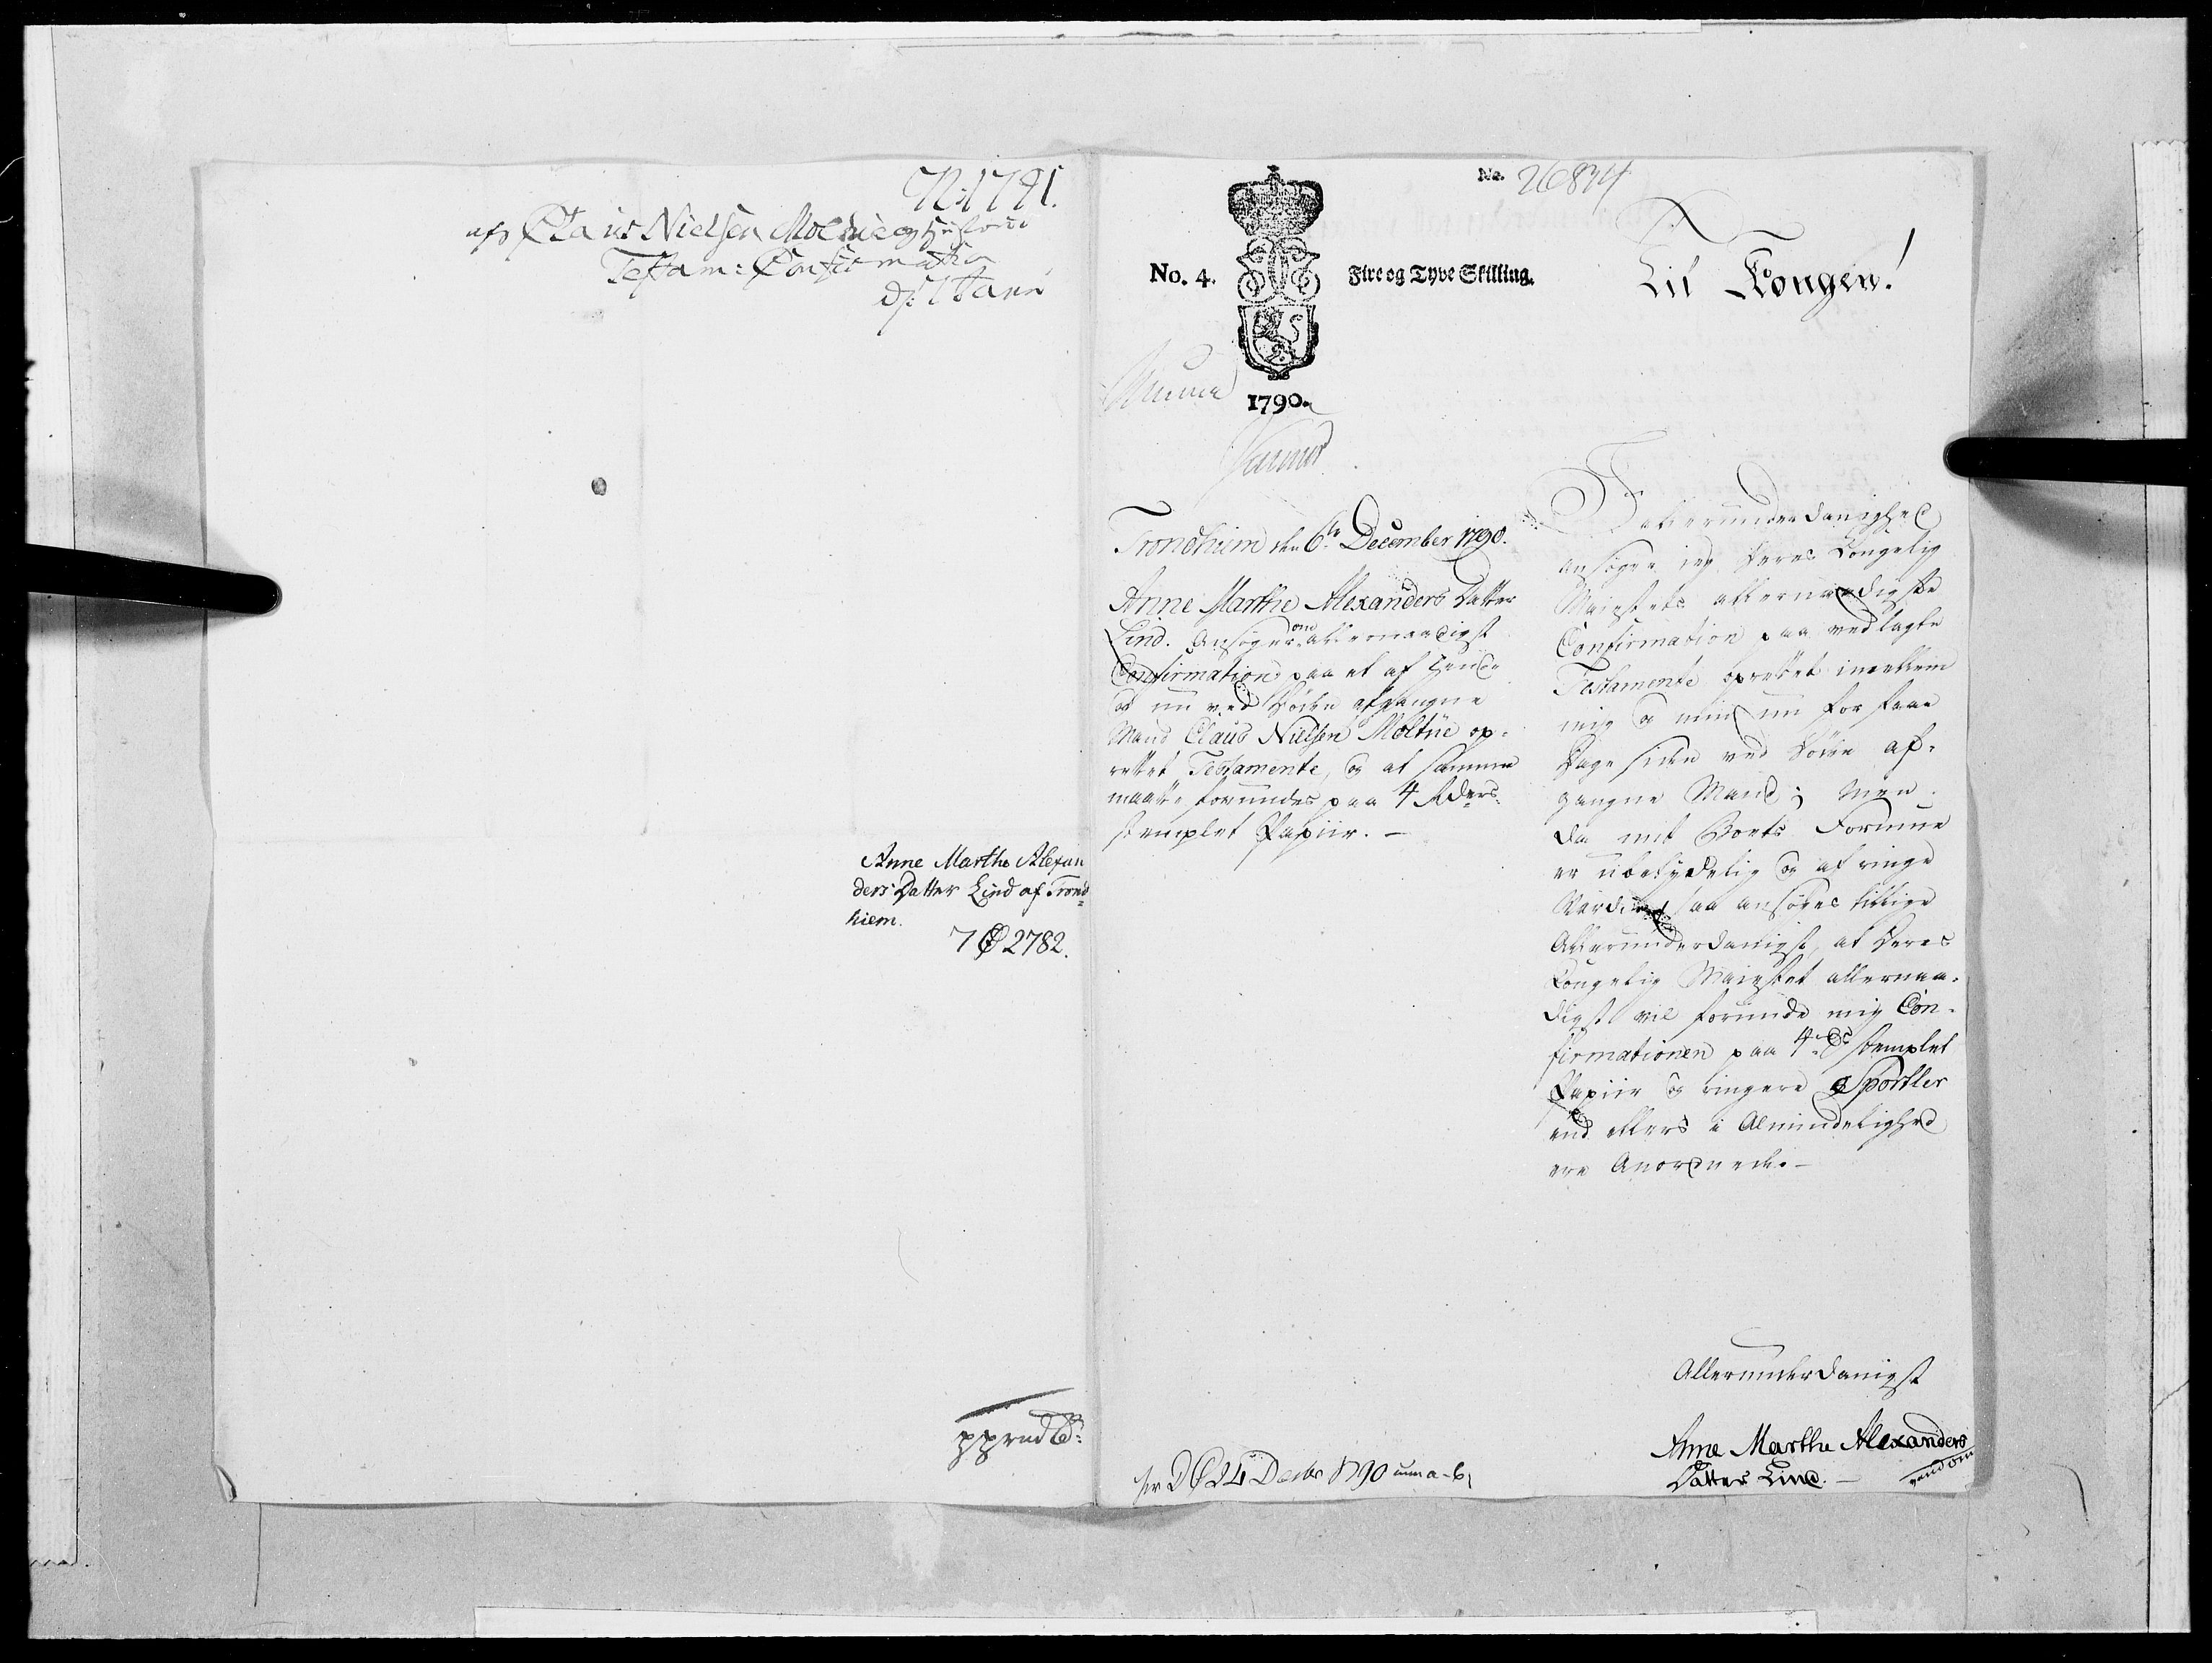 N: 1791.
Claus Nielsen Moltue og Hustrues
Testam: Confirmation
d: 7 Janr
Anne Marthe Alexan
ders Datter Lind af Trond=
hiem.
2782.
No. 26874
No. 4.
Fire og Tyve Skilling.
1790.
Til Kongen!
Trondhiem den 6te December 1790.
Anne Marthe Alexanders Datter
Lind. Ansøger om allernaadigst
Confirmation paa et af hende
og nu ved Døden afgangne
Mand Claus Nielsen Moltue op=
rettet Testamente, og at samme
maatte forundes paa 4 Rders
stemplet Papiir. -
I allerunderdanighed
ansøger jeg Deres Kongelig
Majestets allernaadigste
Confirmation paa vedlagte
Testamente oprettet imellem
mig og min nu for faae
Dage siden ved Døden af=
gangne Mand; Men
da mit Boets Formue
er ubetydelig og af ringe
Værdie, saa ansøges tillige
Allerunderdanigst, at Deres
Kongelig Majestet allernaa=
digst vil forunde mig Con=
firmationen paa 4 Rds stemplet
Papiir og ringere Sportler
end ellers i Almindelighed
ere Anordnede. -
Allerunderdanigst
Anne Marthe Alexanders
Datter Lind. -
vend om
24 Decbr 1790